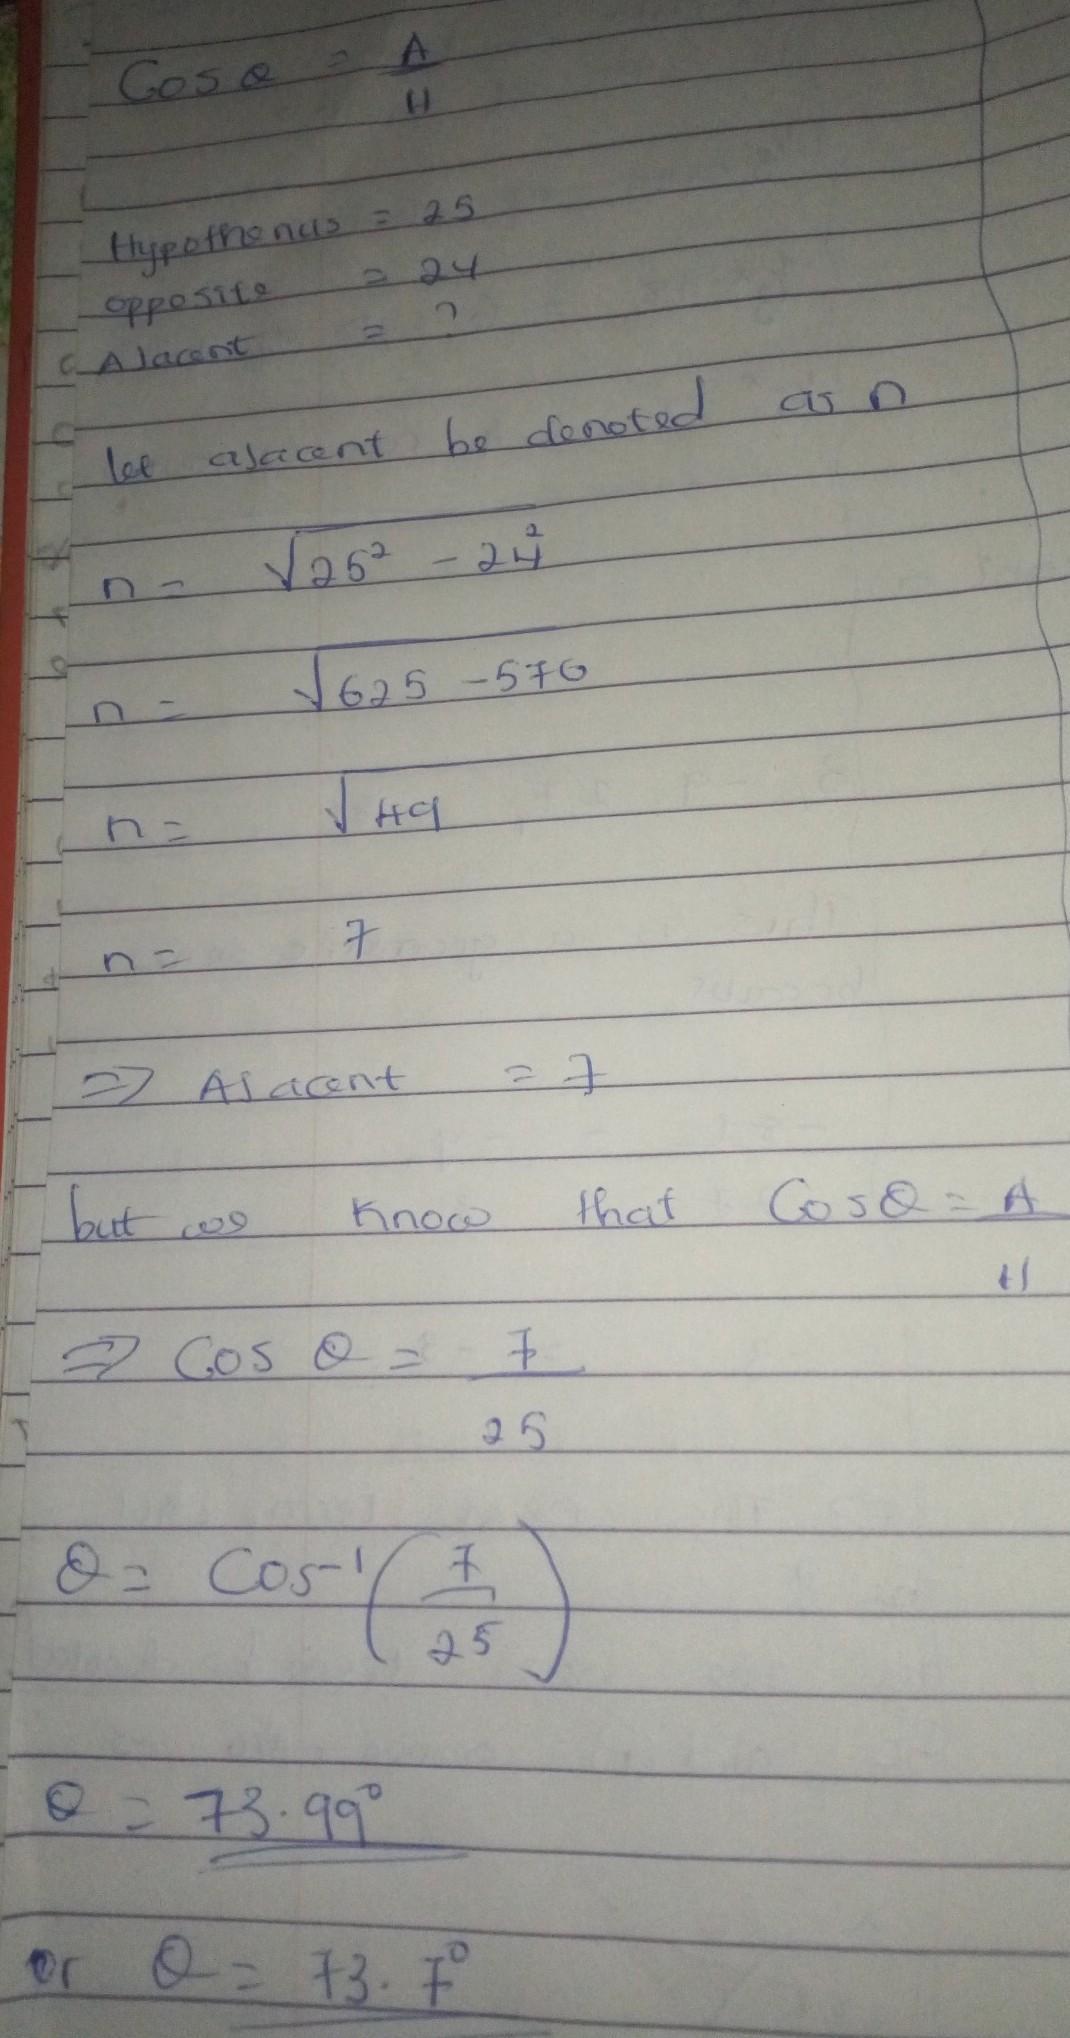 Cos θ = A
H
Hypothenus = 25
opposite = 24
AJacent = ?
let aJacent be denoted as n
n = √25² - 24²
n = √625 - 576
n = √49
n = 7
⇒ AJacent = 7
but we know that Cos θ = A
H
⇒ Cos θ = 7
25
θ = Cos⁻¹ (7
25)
θ = 73.99°
or θ = 73.7°